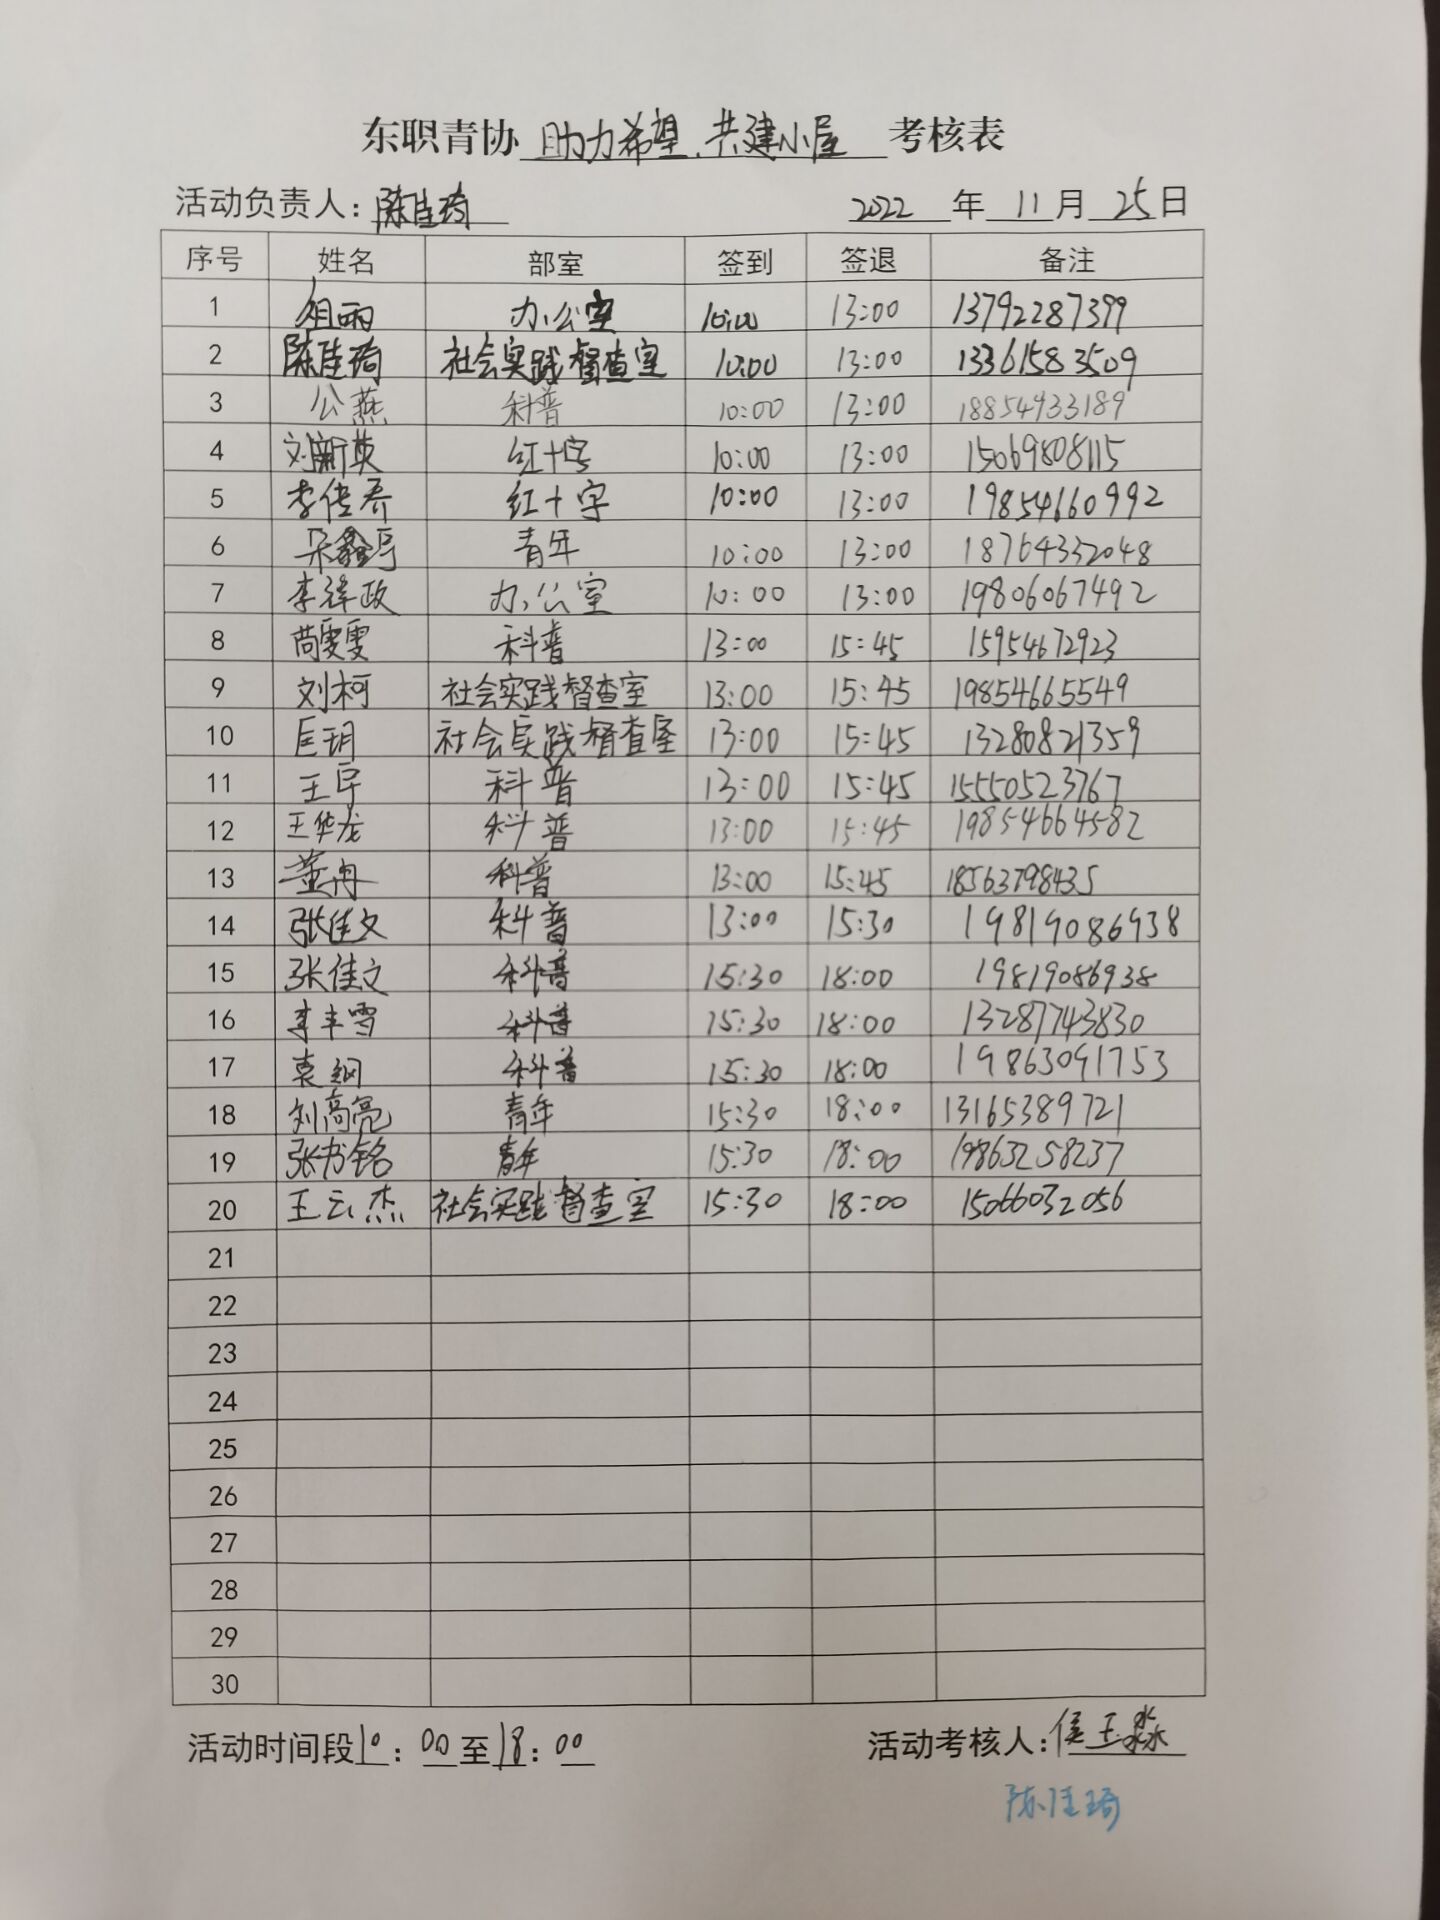 东职青协 助力希望、共建小屋 考核表
活动负责人：陈佳琦 2022 年 11 月 25 日
序号 姓名 部室 签到 签退 备注
1 办公室 10:00 13:00 13792287399
2 陈佳琦 社会实践督查室 10:00 13:00 13361583509
3 公燕 科普 10:00 13:00 18854933189
4 刘新英 红十字 10:00 13:00 15069808115
5 李佳乔 红十字 10:00 13:00 19854660992
6 青年 10:00 13:00 18764332048
7 李泽政 办公室 10:00 13:00 19806067492
8 雯雯 科普 13:00 15:45 15954672923
9 刘柯 社会实践督查室 13:00 15:45 19854665549
10 匡玥 社会实践督查室 13:00 15:45 13280821359
11 王宇 科普 13:00 15:45 15550523767
12 王华龙 科普 13:00 15:45 19854664582
13 董冉 科普 13:00 15:45 18563798435
14 张佳文 科普 13:00 15:30 19819086938
15 张佳文 科普 15:30 18:00 19819086938
16 李丰雪 科普 15:30 18:00 13287743830
17 袁纲 科普 15:30 18:00 19863091753
18 刘高亮 青年 15:30 18:00 13165389721
19 张书铭 青年 15:30 18:00 19863258237
20 王云杰 社会实践督查室 15:30 18:00 15066032056
21
22
23
24
25
26
27
28
29
30
活动时间段10：00至18：00 活动考核人：侯玉淼
陈佳琦